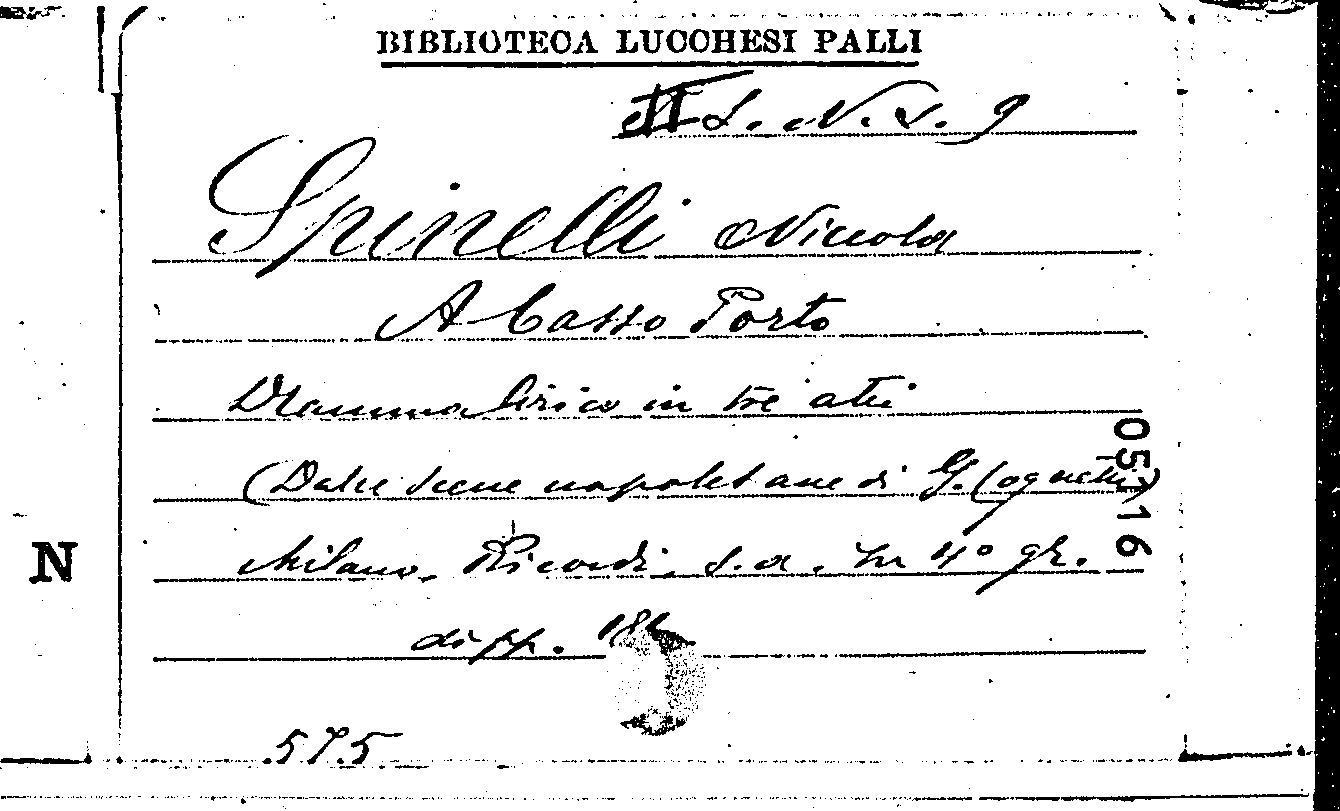 BIBLIOTECA LUCCHESI PALLI
N. S. 9
Spinelli Niccola
A basso Porto
Dramma lirico in tre atti
(Dalle scene napoletane di G. Cognetti)
Milano, Ricordi, s.a. In 4° gr.
di pp.
575
N